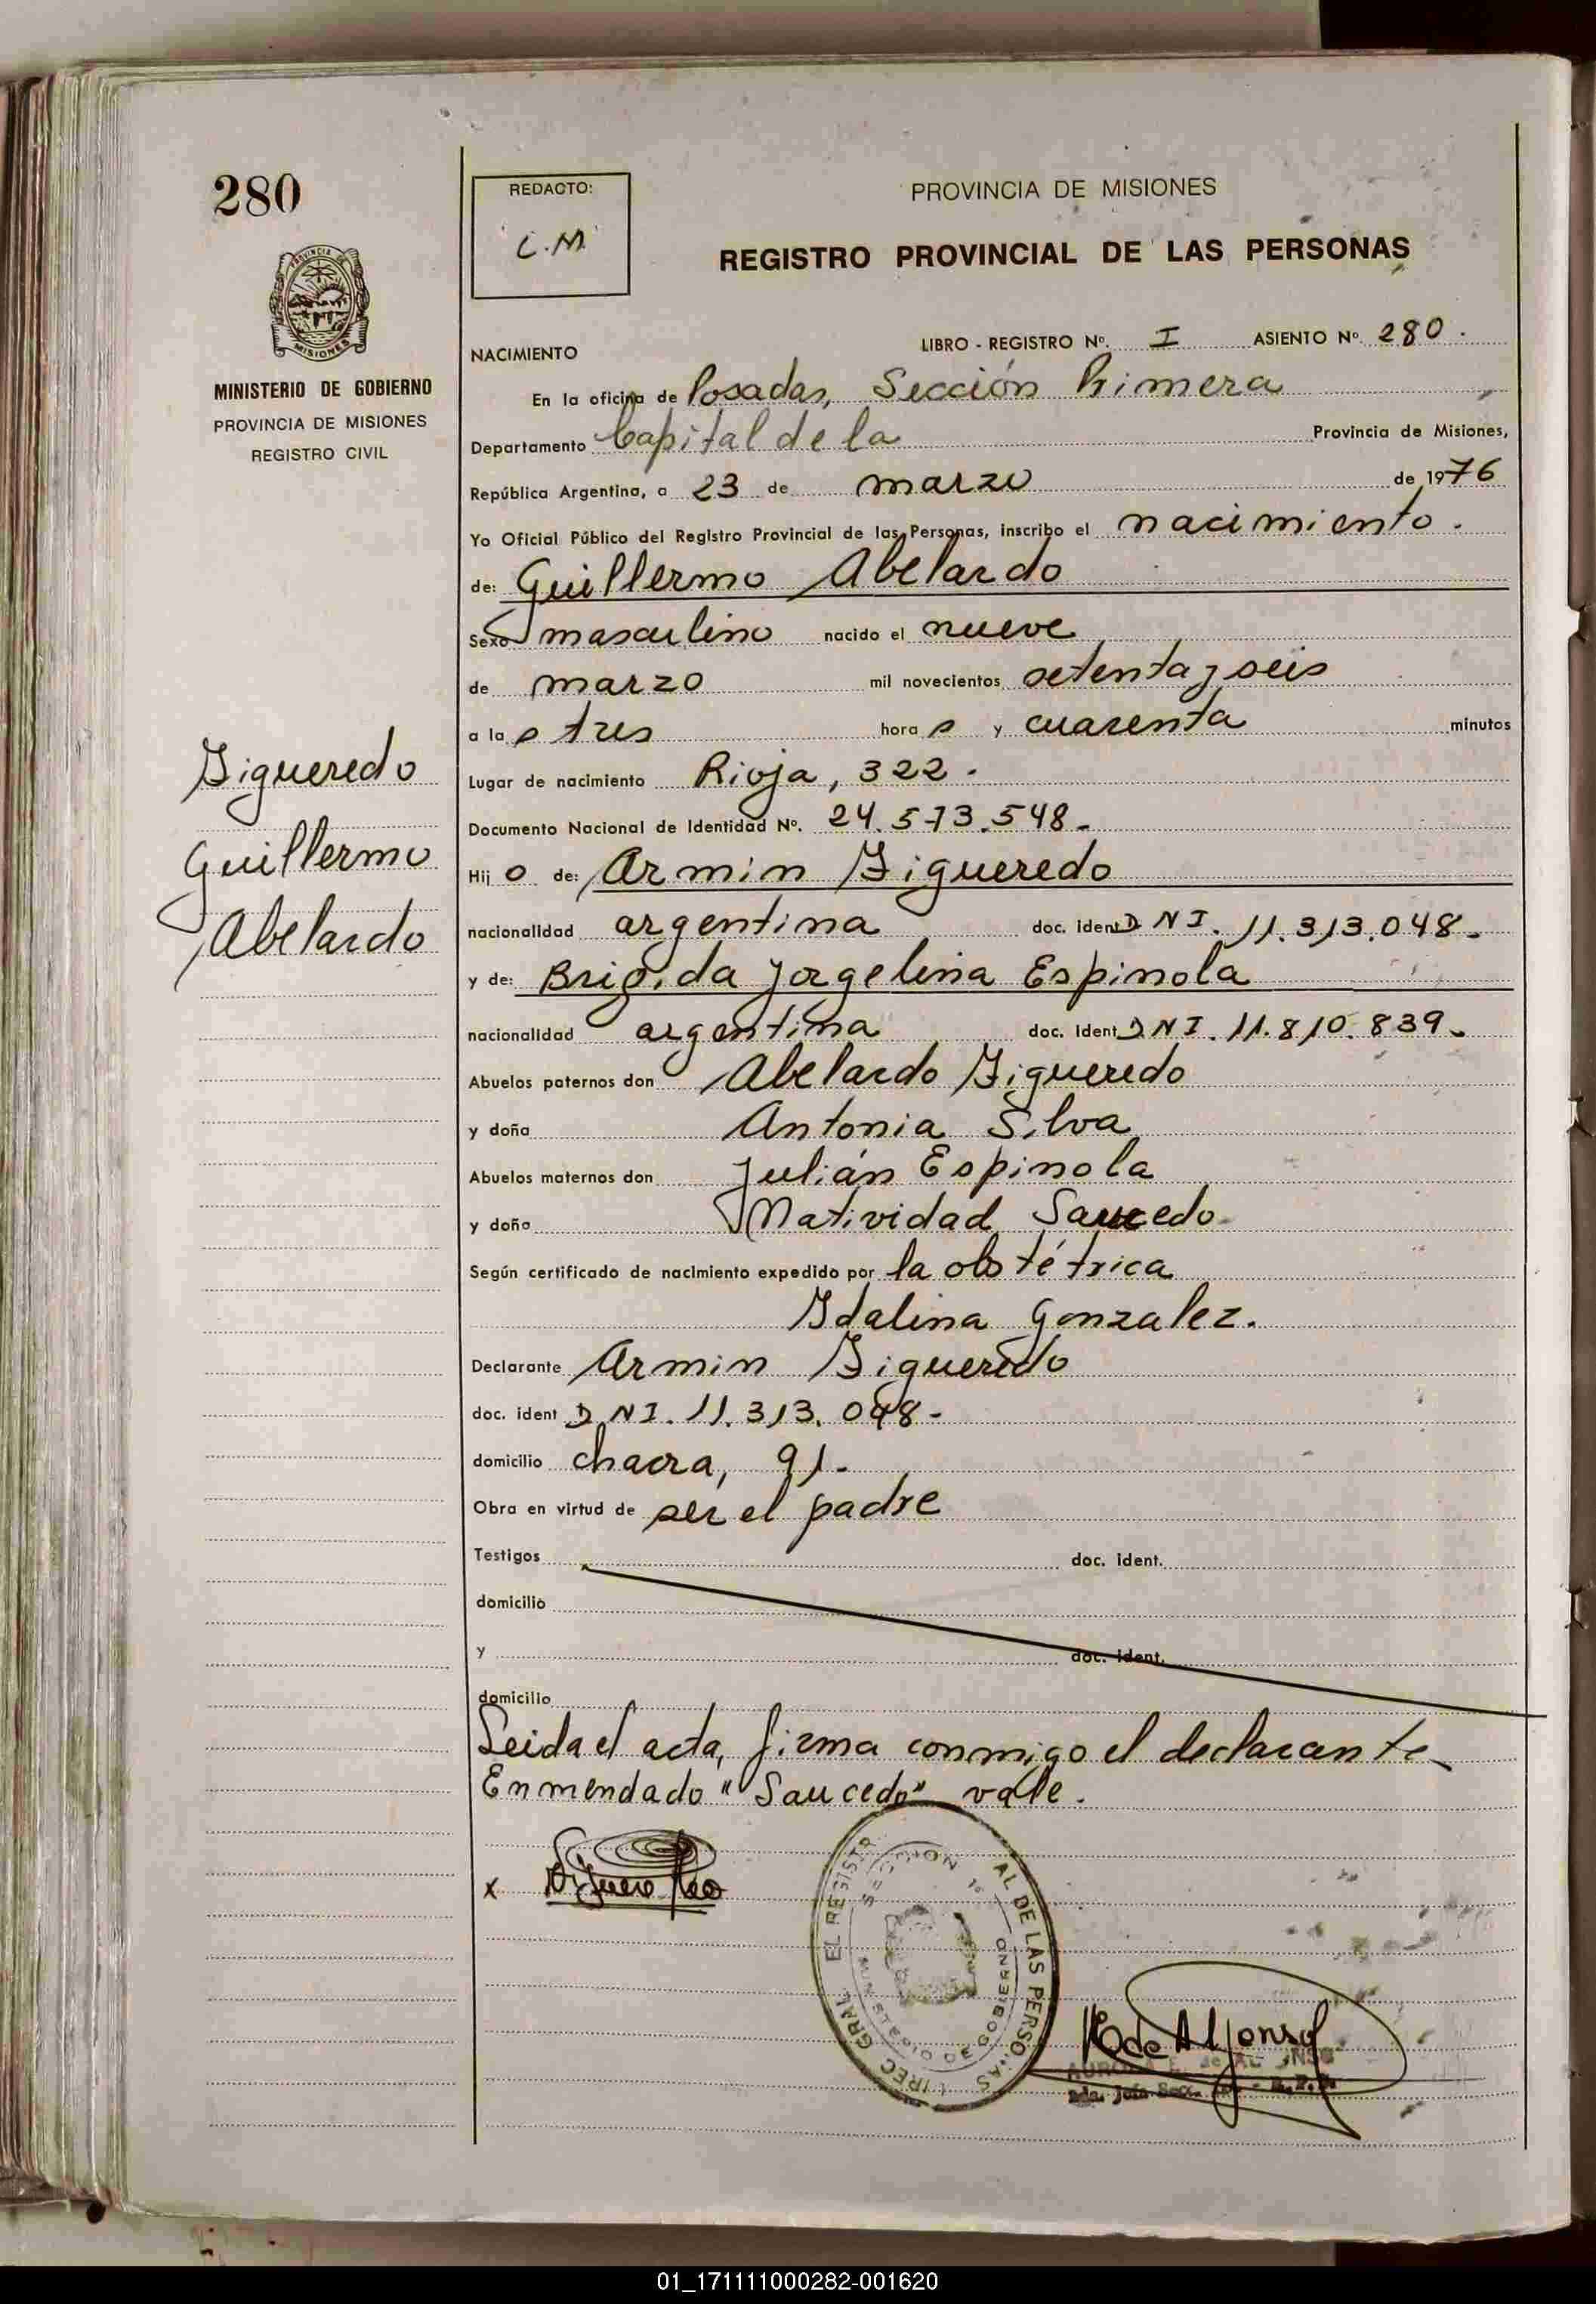 280
PROVINCIA DE
MISIONES
MINISTERIO DE GOBIERNO
PROVINCIA DE MISIONES
REGISTRO CIVIL
Figueredo
Guillermo
Abelardo
REDACTO:
C.M
PROVINCIA DE MISIONES
REGISTRO PROVINCIAL DE LAS PERSONAS
NACIMIENTO LIBRO - REGISTRO Nº. I ASIENTO Nº. 280.
En la oficina de Posadas, Sección Primera
Departamento Capital de la Provincia de Misiones,
República Argentina, a 23 de marzo de 1976
Yo Oficial Público del Registro Provincial de las Personas, inscribo el nacimiento.
de: Guillermo Abelardo
Sexo masculino nacido el nueve
de marzo mil novecientos setenta y seis
a las tres horas y cuarenta minutos
Lugar de nacimiento Rioja, 322.
Documento Nacional de Identidad Nº. 24.573.548-
Hijo de: Armin Figueredo
nacionalidad argentina doc. ident DNI. 11.313.048-
y de: Brigida Jorgelina Espinola
nacionalidad argentina doc. Ident. DNI. 11.810.839-
Abuelos paternos don Abelardo Figueredo
y doña Antonia Silva
Abuelos maternos don Julián Espinola
y doña Natividad Saucedo
Según certificado de nacimiento expedido por la obstétrica
Idalina Gonzalez.
Declarante Armin Figueredo
doc. ident DNI. 11.313.048-
domicilio chacra, 91-
Obra en virtud de ser el padre
Testigos doc. ident.
domicilio
y doc. ident.
domicilio
Leida el acta, firma conmigo el declarante-
Enmendado "Saucedo" vale.
x Figueredo
EL REGISTR AL DE LAS PERSONAS
SECCION 1ª
MINISTERIO DE GOBIERNO
DIREC. GRAL.
de Alfonso
01_171111000282-001620